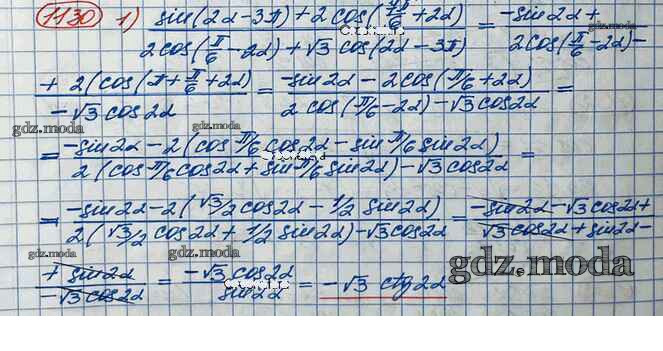 1130 1) sin(2α-3π)+2cos(7π/6+2α) / 2cos(π/6-2α)+√3 cos(2α-3π) = -sin2α+ / 2cos(π/6-2α)-
+2(cos(π+π/6+2α) / -√3 cos2α = -sin2α-2cos(π/6+2α) / 2cos(π/6-2α)-√3cos2α =
gdz.moda
gdz.moda
= -sin2α-2(cosπ/6cos2α-sinπ/6sin2α) / 2(cosπ/6cos2α+sinπ/6sin2α)-√3cos2α =
= -sin2α-2(√3/2cos2α-1/2sin2α) / 2(√3/2cos2α+1/2sin2α)-√3cos2α = -sin2α-√3cos2α+ / √3cos2α+sin2α-
gdz.moda
gdz.moda
+sin2α / -√3cos2α = -√3cos2α / sin2α = -√3 ctg2α